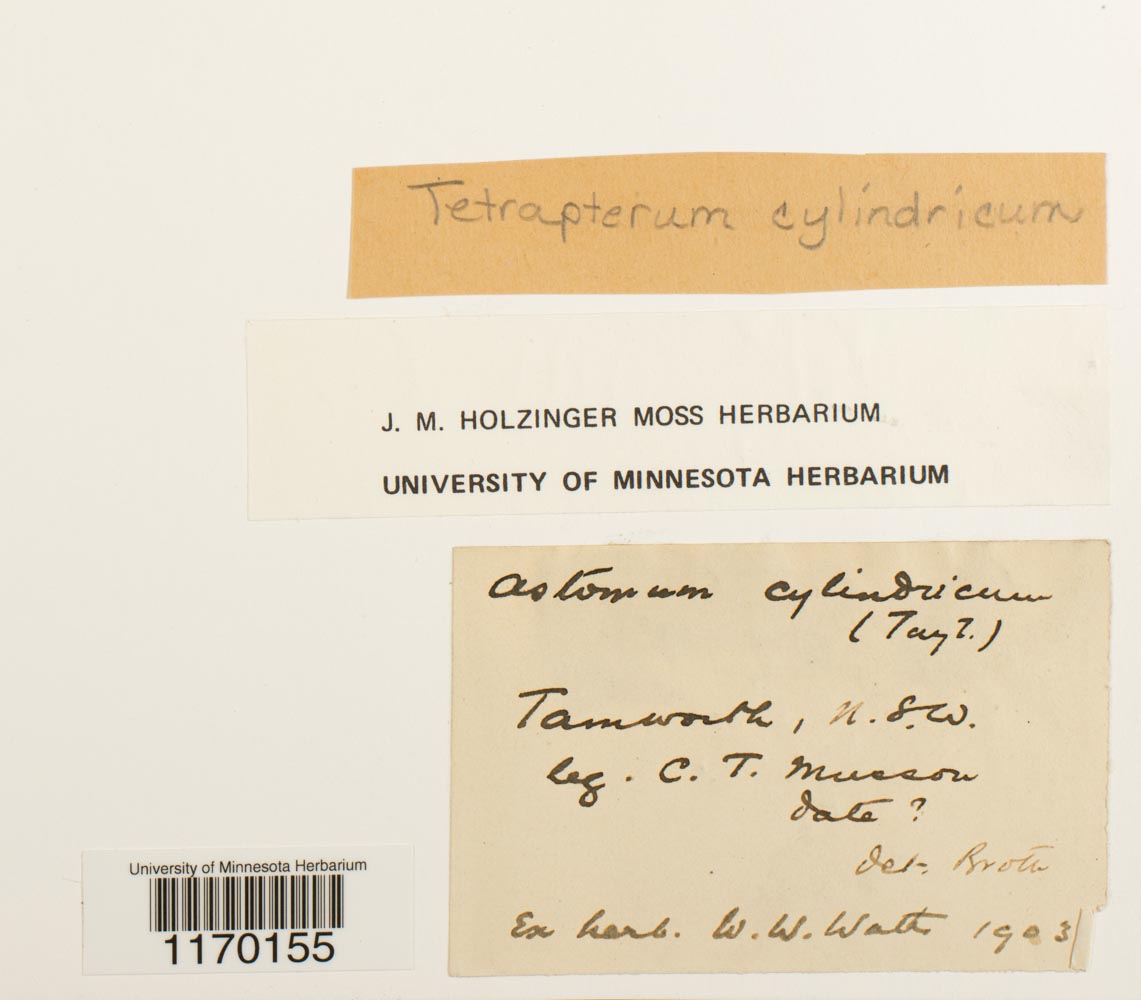 Tetrapterum cylindricum
J. M. HOLZINGER MOSS HERBARIUM
UNIVERSITY OF MINNESOTA HERBARIUM
Astomum cylindricum
(Tayl.)
Tamworth, N.S.W.
leg. C. T. Musson
date ?
det. Broth
Ex herb. W. W. Watts 1903
University of Minnesota Herbarium
1170155